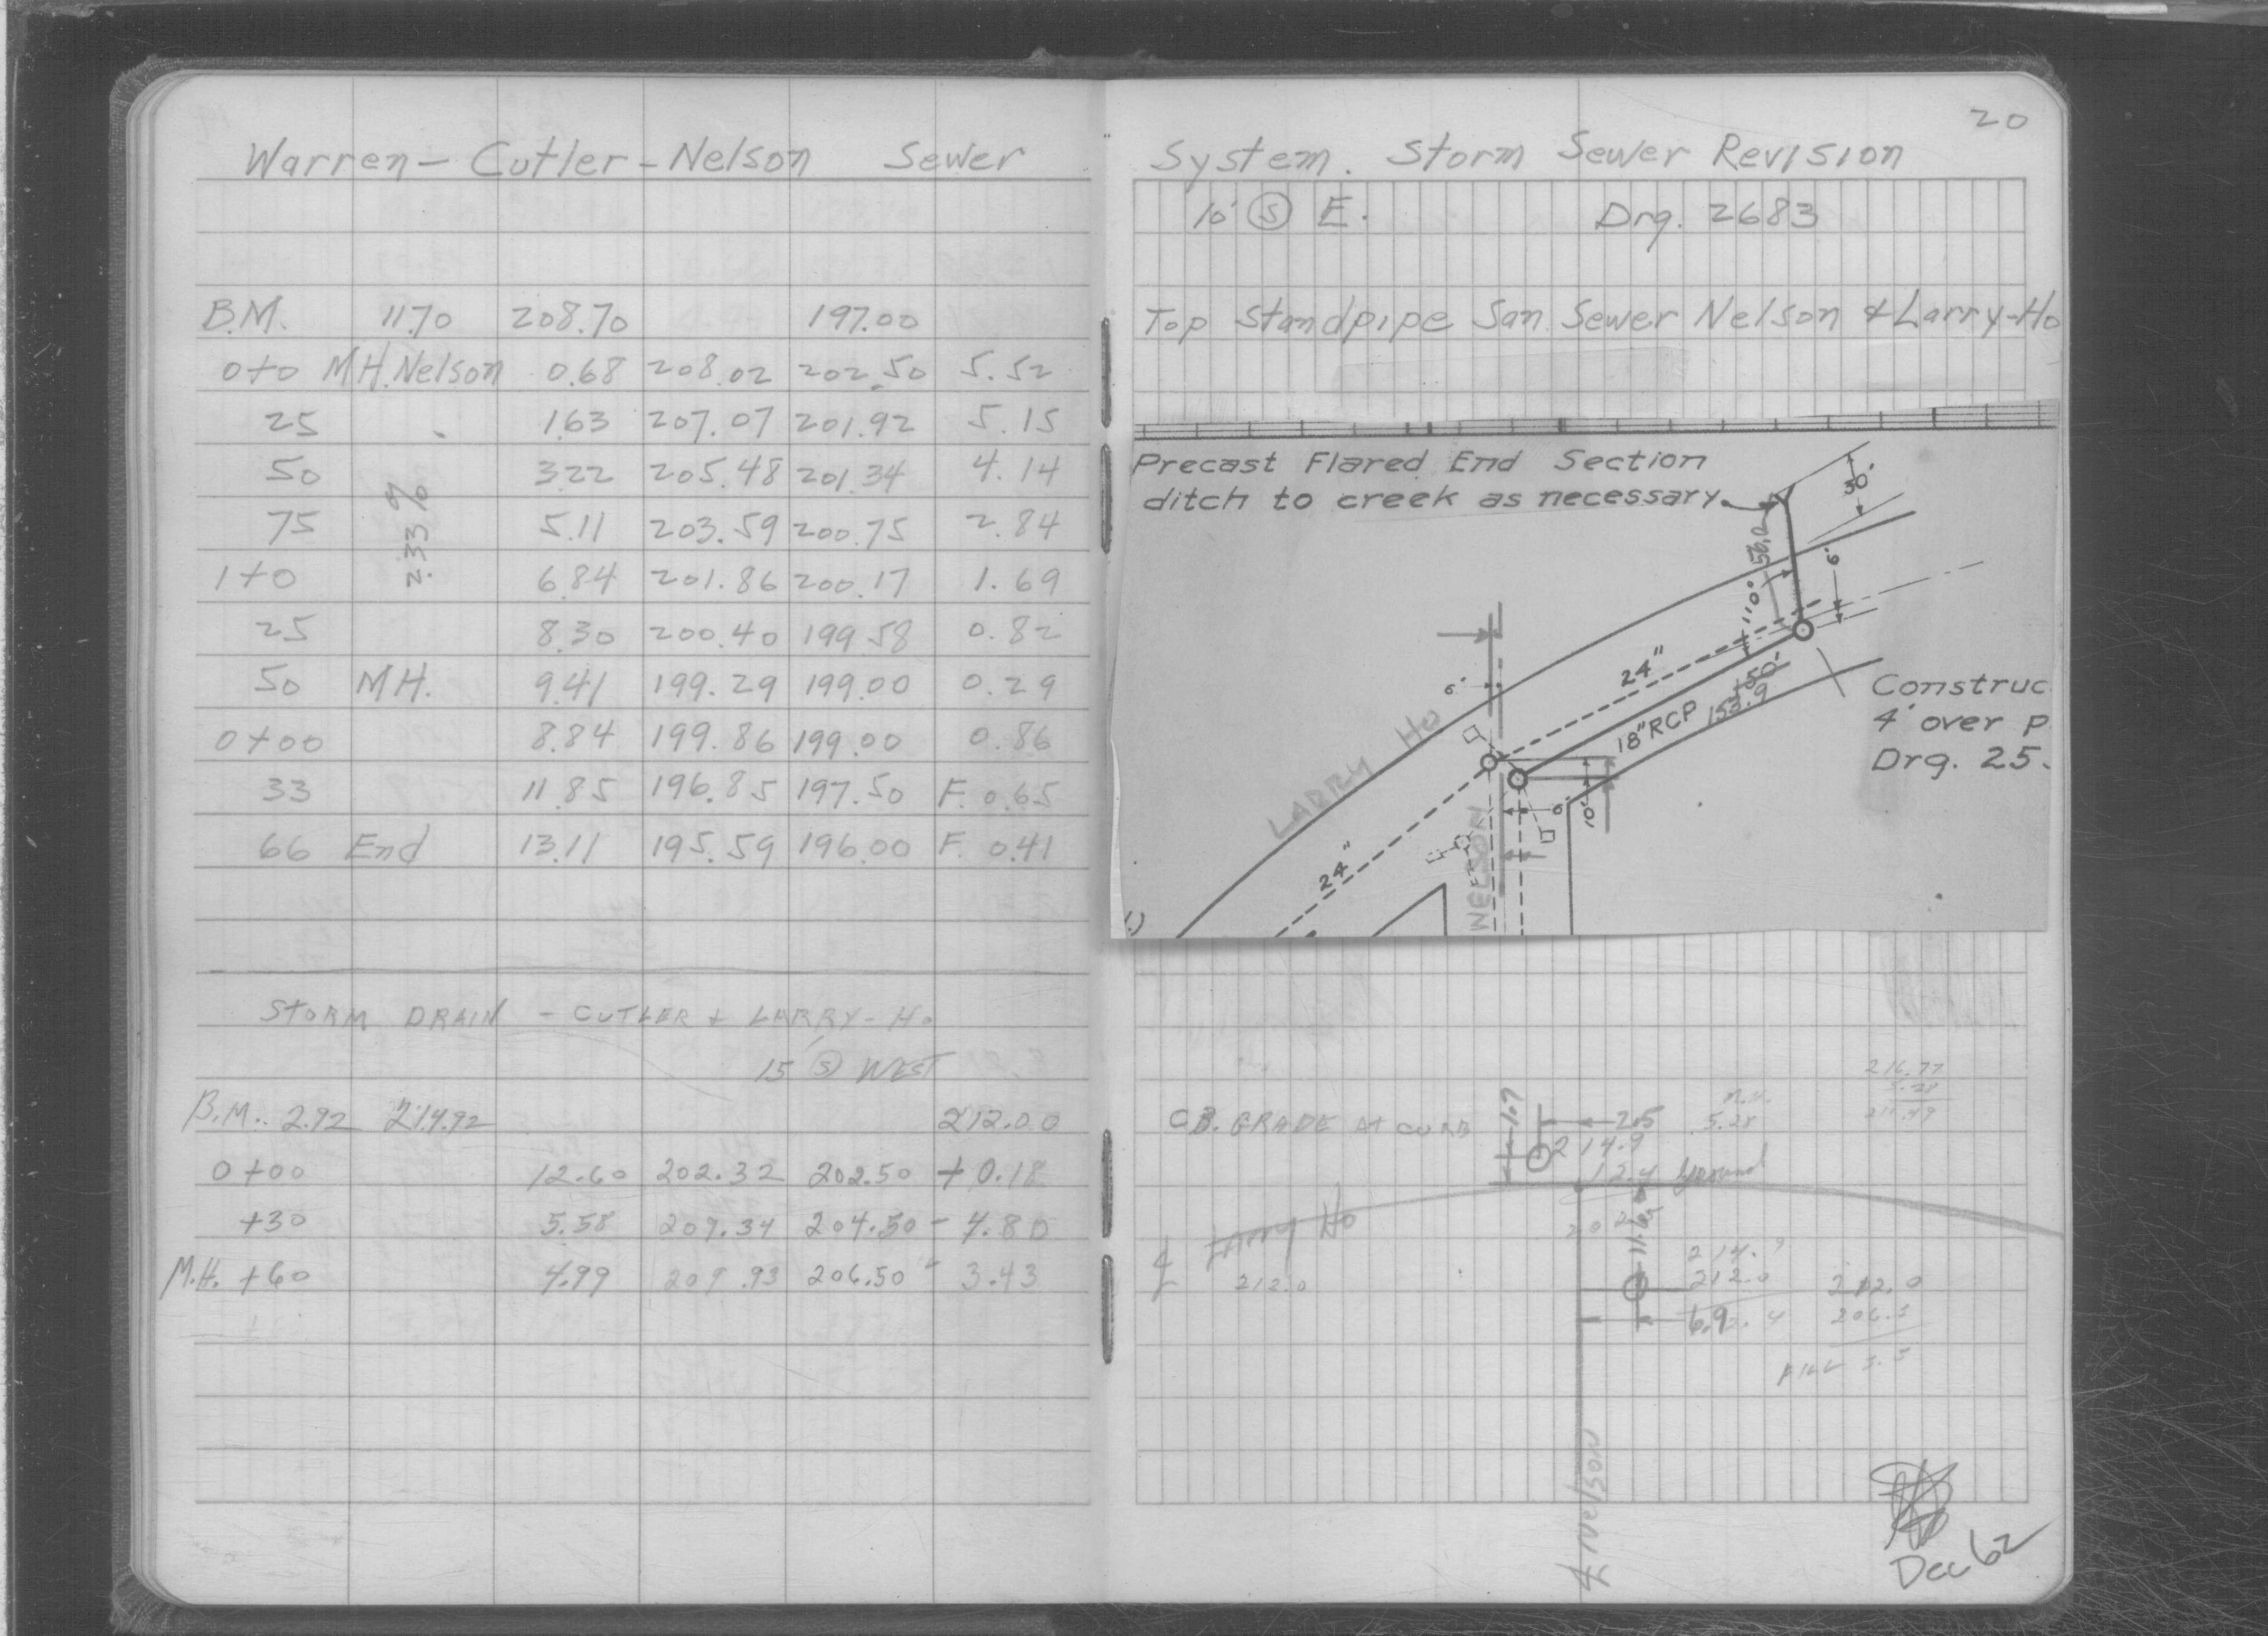 20
Warren - Cutler - Nelson Sewer System. Storm Sewer Revision
10' Ⓢ E. Drg. 2683
B.M. 11.70 208.70 197.00 Top Standpipe San. Sewer Nelson & Larry-Ho
0+0 M.H. Nelson 0.68 208.02 202.50 5.52
25 1.63 207.07 201.92 5.15
50 3.22 205.48 201.34 4.14
75 5.11 203.59 200.75 2.84
2.33%
1+0 6.84 201.86 200.17 1.69
25 8.30 200.40 199.58 0.82
50 M.H. 9.41 199.29 199.00 0.29
0+00 8.84 199.86 199.00 0.86
33 11.85 196.85 197.50 F. 0.65
66 End 13.11 195.59 196.00 F. 0.41
STORM DRAIN - CUTLER + LARRY-Ho
15' Ⓢ WEST
B.M. 2.92 214.92 212.00
0+00 12.60 202.32 202.50 + 0.18
+30 5.58 209.34 204.50 - 4.80
M.H. +60 4.99 209.93 206.50 - 3.43
Precast Flared End Section
ditch to creek as necessary.
30'
56.0
110°
6'
24"
6'
18" RCP 153.9
Construc
4' over p
Drg. 25.
LARRY Ho
NELSON
6'
10'
24"
216.77
5.28
211.49
C.B. GRADE At CURB
1.7
2.5
5.28
214.9
12.4 Ground
202.5
11.65
Larry Ho
℄
212.0
214.9
212.0
6.9
212.0
206.5
FILL 5.5
℄ Nelson
Dec 62